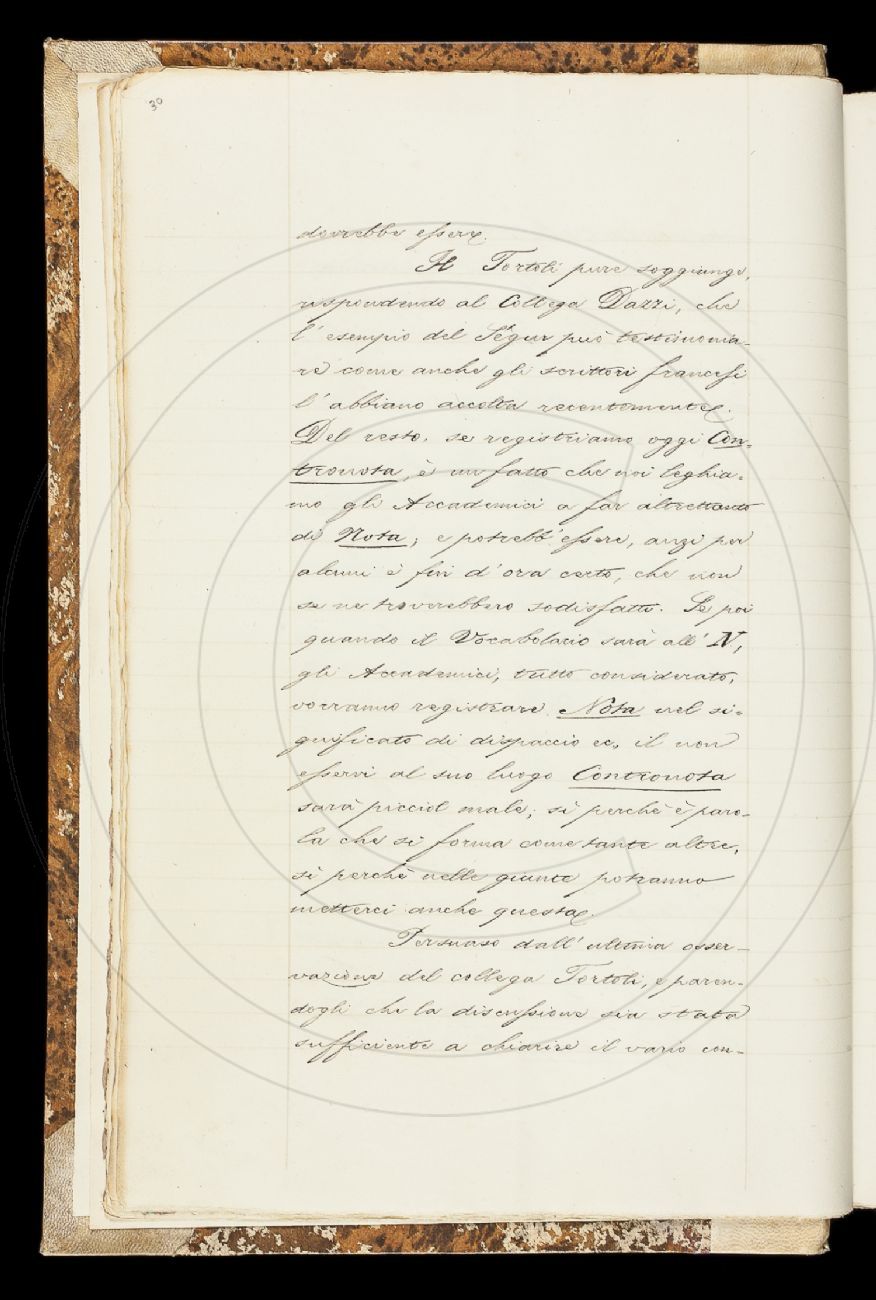 30
dovrebbe essere.
Il Tortoli pure soggiunge,
rispondendo al Collega Dazzi, che
l'esempio del Ségur può testimonia-
re come anche gli scrittori francesi
l'abbiano accolta recentemente.
Del resto, se registriamo oggi Con-
tronota, è un fatto che noi leghia-
mo gli Accademici a far altrettanto
di Nota; e potrebb'essere, anzi per
alcuni è fin d'ora certo, che non
se ne troverebbero sodisfatti. Se poi
quando il Vocabolario sarà all'N,
gli Accademici, tutto considerato,
vorranno registrare Nota nel si-
gnificato di dispaccio ec., il non
esservi al suo luogo Contronota
sarà picciol male; sì perchè è paro-
la che si forma come tante altre,
sì perchè nelle giunte potranno
metterci anche questa.
Persuaso dall'ultima osser-
vazione del collega Tortoli, e paren-
dogli che la discussione sia stata
sufficiente a chiarire il vario con-